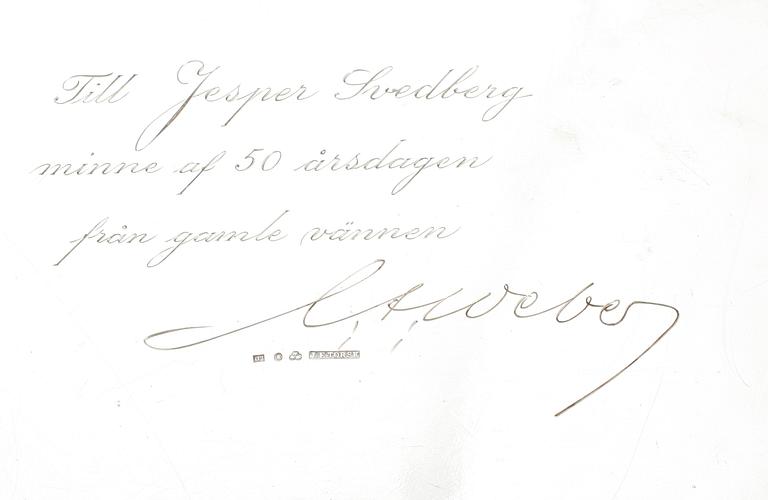 Till Jesper Svedberg
minne af 50 årsdagen
från gamle vännen
Weber